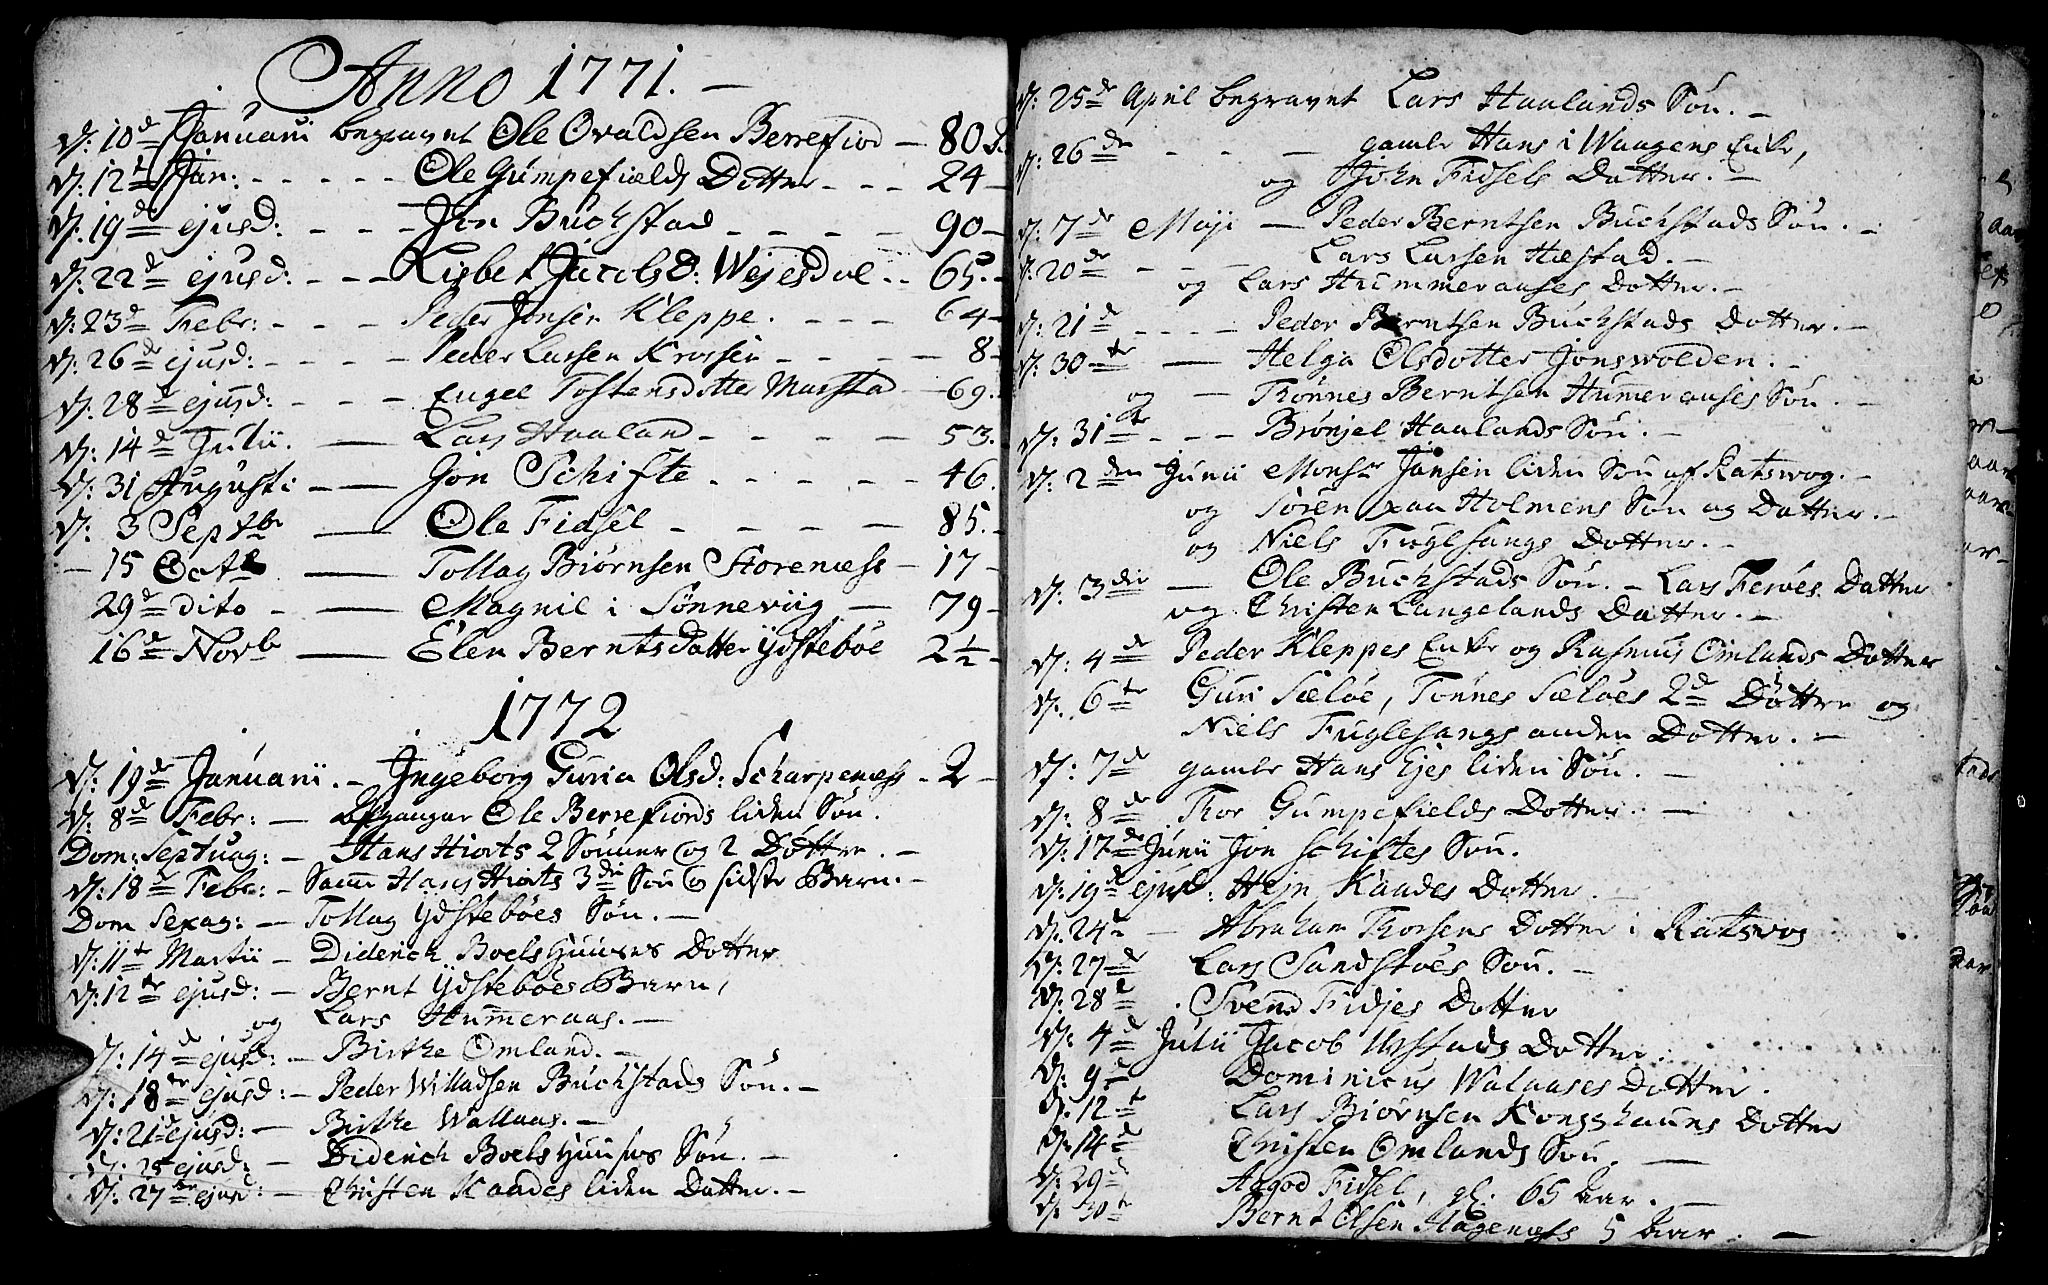 Anno 1771. —
D: 10de Januarii begravet Ole Ovaldsen Berrefiord — 80
D: 12t Jan: - - - - - Ole Gumpefields Dotter - - - 24 -
D. 19de ejusd: - - - Jon Buchstad - - - - 90 -
D: 22de ejusd: - - - Lisbet Jacobsd: Wejesdal - - 65. -
D: 23de Febr: - - - Peder Jonsen Kleppe. - - - 64 -
D: 26de ejusd: - - - - Peder Larsen Krossen - - - - 8 -
D: 28de ejusd: - - - Engel Tostensdotter Marstad - 69.
D: 14de Julii. — Lars Haaland - - - - 53.
D: 31 Augusti — Jon Schifte - - - - - 46.
D: 3 Septbr — Ole Fidsel - - - - 85. -
- 15 Octb — Tollag Biørnsen Storenæss - 17 -
29de dito - — Magnil i Sønneviig — 79 -
16de Novb — Elen Berntsdatter Ydstebøe 2½ -
1772
D: 19de Januarii. - Ingeborg Guria Olsd: Scharpenæss - 2 -
D: 8de Febr: — Afgangar Ole Berrefiords liden Søn.
Dom: Septuag: - Hans Hiorts 2 Sønner og 2 Døttre. -
D: 18de Febr: - Samme Hans Hiorts 3die Søn og sidste Barn. -
Dom Sexag: — Tollag Ydstebøes Søn. —
D: 11te Martii - Diderich Boelshuuses Dotter
D: 12te ejusd: - Bernt Ydstebøes Barn,
og Lars Hummeraas. —
D: 14de ejusd: - Birthe Omland. -
D: 18de ejusd: - Peder Willadsen Buchstads Søn. -
D: 21de ejusd: — Birthe Wallaas. -
D: 25 ejusd: - Diderich Boelshuuses Søn. -
D: 27de ejusd: — Christen Kaades liden Dotter. -
D: 25de April begravet Lars Haalands Søn. -
D: 26de - - - gamle Hans i Waagens Enke,
og John Fidsels Dotter. -
D: 7de Maji — Peder Berntsen Buchstads Søn. -
D: 20de - - - Lars Larsen Hæstad. -
og Lars Hummeraases Dotter. -
D: 21de - - - - Peder Berntsen Buchstads Dotter. -
D: 30te — Helga Olsdotter Jonswolden. -
og — Tønnes Berntsen Humeraases Søn. -
D: 31te - - - Brønjel Haalands Søn. -
D: 2den Junii Monsr Jansen liden Søn af Ratsvog. -
og Søren paa Holmens Søn og Dotter. -
og Niels Fuglesangs Dotter. -
D: 3die — Ole Buchstads Søn. - Lars Ferøes Dotter
og Christen Langelands Dotter. -
D: 4de Peder Kleppes Enke og Rasmus Omlands Dotter
D: 6te Guri Sæløe, Tønnes Sæløes 2de Døttre og
Niels Fuglesangs anden Dotter. -
D: 7de gamle Hans Ejes liden Søn. —
D: 8de Thor Gumpefields Dotter. —
D: 17de Junii Jon Schiftes Søn.
D: 19de ejusd: Hejn Kaades Dotter.
D: 24de — Abraham Thorsens Dotter i Ratsvog
D: 27de Lars Sandstøes Søn. -
D: 28de . Svend Fidjes Dotter
D: 4de Julii Jacob Urstads Dotter.
D: 9de Dominicus Walaases Dotter.
D: 12te Lars Biørnsen Kongshauns Dotter
D: 14de Christen Omlands Søn. —
D: 29de Asgod Fidsel, gl: 65 Aar. —
D: 30te Bernt Olsen Hagenæss 5 Aar. —